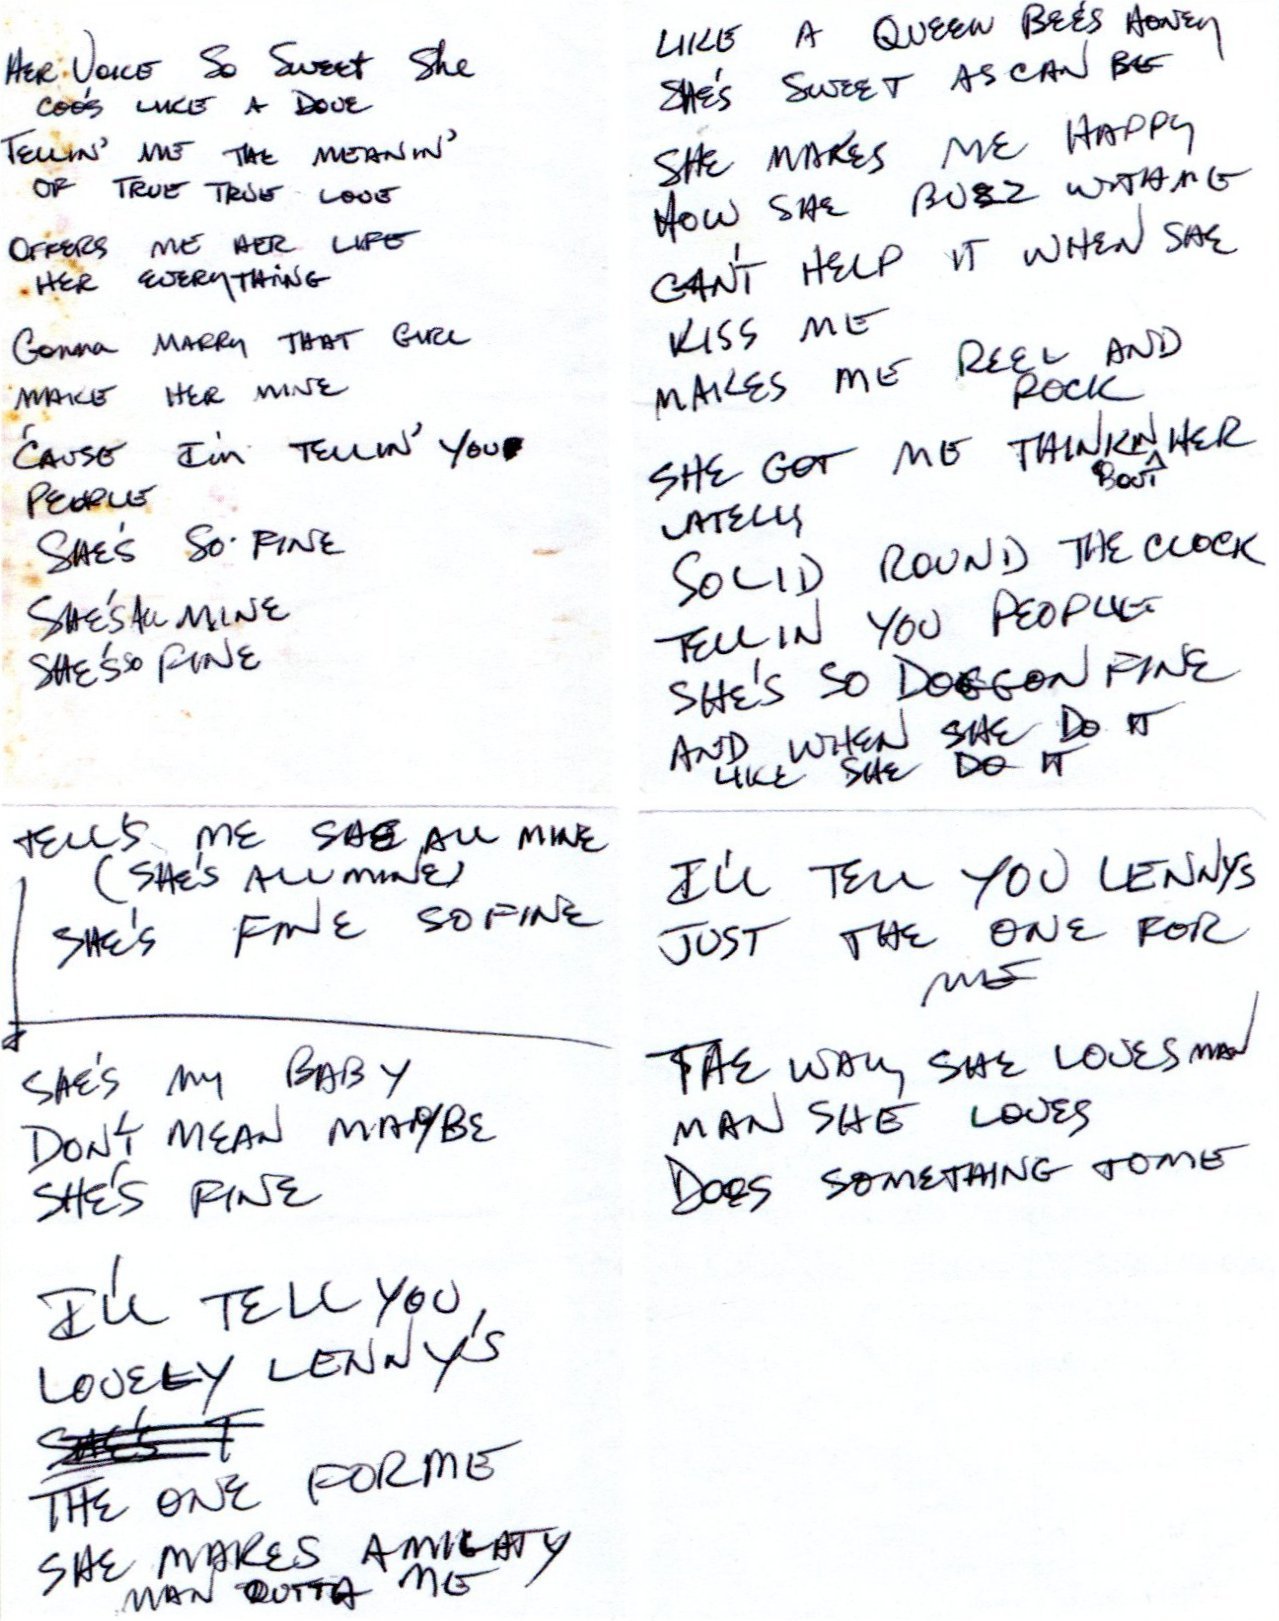 HER VOICE SO SWEET SHE
COO'S LIKE A DOVE
TELLIN' ME THE MEANIN'
OF TRUE TRUE LOVE
OFFERS ME HER LIFE
HER EVERYTHING
GONNA MARRY THAT GIRL
MAKE HER MINE
'CAUSE I'M TELLIN' YOU
PEOPLE
SHE'S SO FINE
SHE'S ALL MINE
SHE'S SO FINE
LIKE A QUEEN BEE'S HONEY
SHE'S SWEET AS CAN BE
SHE MAKES ME HAPPY
HOW SHE BUZZ WITH ME
CAN'T HELP IT WHEN SHE
KISS ME
MAKES ME REEL AND
ROCK
SHE GOT ME THINKIN HER
BOUT
LATELY
SOLID ROUND THE CLOCK
TELLIN YOU PEOPLE
SHE'S SO DOGGON FINE
AND WHEN SHE DO IT
LIKE SHE DO IT
TELL'S ME SHE ALL MINE
(SHE'S ALL MINE)
SHE'S FINE SO FINE
SHE'S MY BABY
DON'T MEAN MAYBE
SHE'S FINE
I'LL TELL YOU,
LOVELY LENNY'S
SHE'S T
THE ONE FOR ME
SHE MAKES A MIGHTY
MAN OUTTA ME
I'LL TELL YOU LENNYS
JUST THE ONE FOR
ME
THE WAY SHE LOVES MAN
MAN SHE LOVES
DOES SOMETHING TO ME